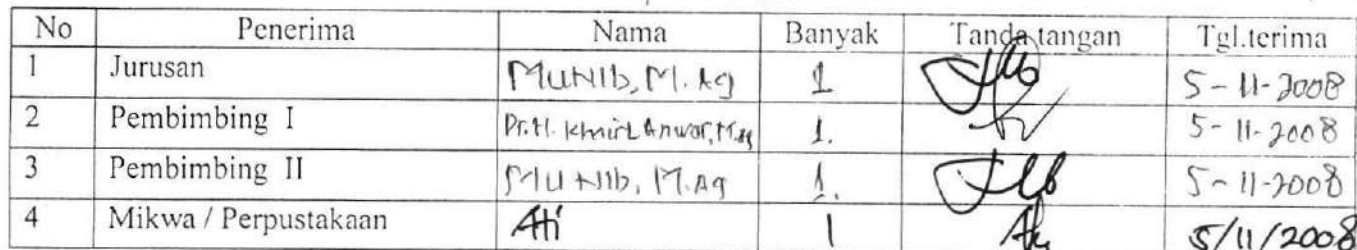 No Penerima Nama Banyak Tanda tangan Tgl.terima
1 Jurusan MUNIB, M.Ag 1 5-11-2008
2 Pembimbing I Dr.H. Khairil Anwar, M.Ag 1. 5-11-2008
3 Pembimbing II MUNIB, M.Ag 1. 5-11-2008
4 Mikwa / Perpustakaan Ati 1 5/11/2008